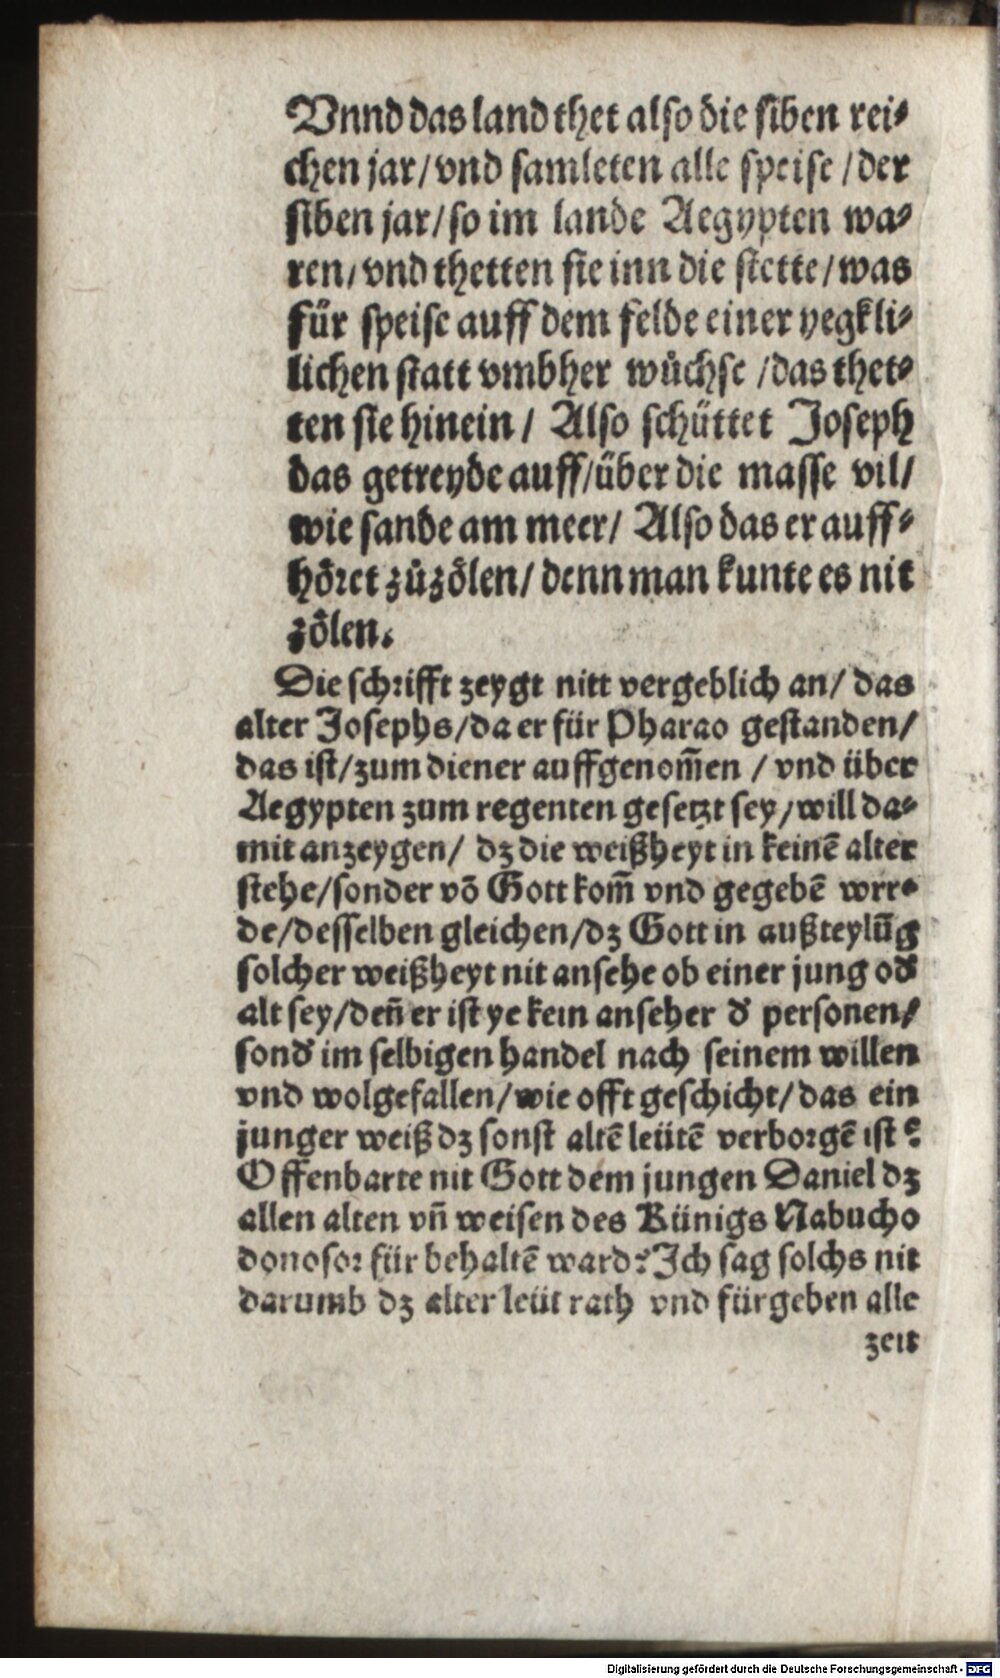 Vnnd das land thet also die siben rei⸗
chen jar/ vnd samleten alle speise / der
siben jar/ so im lande Aegypten wa⸗
ren/ vnd thetten sie inn die stette/ was
für speise auff dem felde einer yegkli⸗
lichen statt vmbher wůchse /das thet⸗
ten sie hinein / Also schüttet Joseph
das getreyde auff/ über die masse vil/
wie sande am meer/ Also das er auff⸗
höret zůzölen/ denn man kunte es nit
zölen.
Die schrifft zeygt nitt vergeblich an/ das
alter Josephs/ da er für Pharao gestanden/
das ist/ zum diener auffgenom̃en / vnd über
Aegypten zum regenten gesetzt sey/ will da⸗
mit anzeygen/ dz die weißheyt in keinē alter
stehe/ sonder vō Gott kom̃ vnd gegebē wer⸗
de/ desselben gleichen/ dz Gott in außteylūg
solcher weißheyt nit ansehe ob einer jung od̕
alt sey/ deñ er ist ye kein anseher d̕ personen/
sond̕ im selbigen handel nach seinem willen
vnd wolgefallen/ wie offt geschicht/ das ein
junger weiß dz sonst altē leütē verborgē ist?
Offenbarte nit Gott dem jungen Daniel dz
allen alten vñ weisen des Künigs Nabucho
donosor für behaltē ward? Ich sag solchs nit
darumb dz alter leüt rath vnd fürgeben alle
zeit
Digitalisierung gefördert durch die Deutsche Forschungsgemeinschaft - DFG